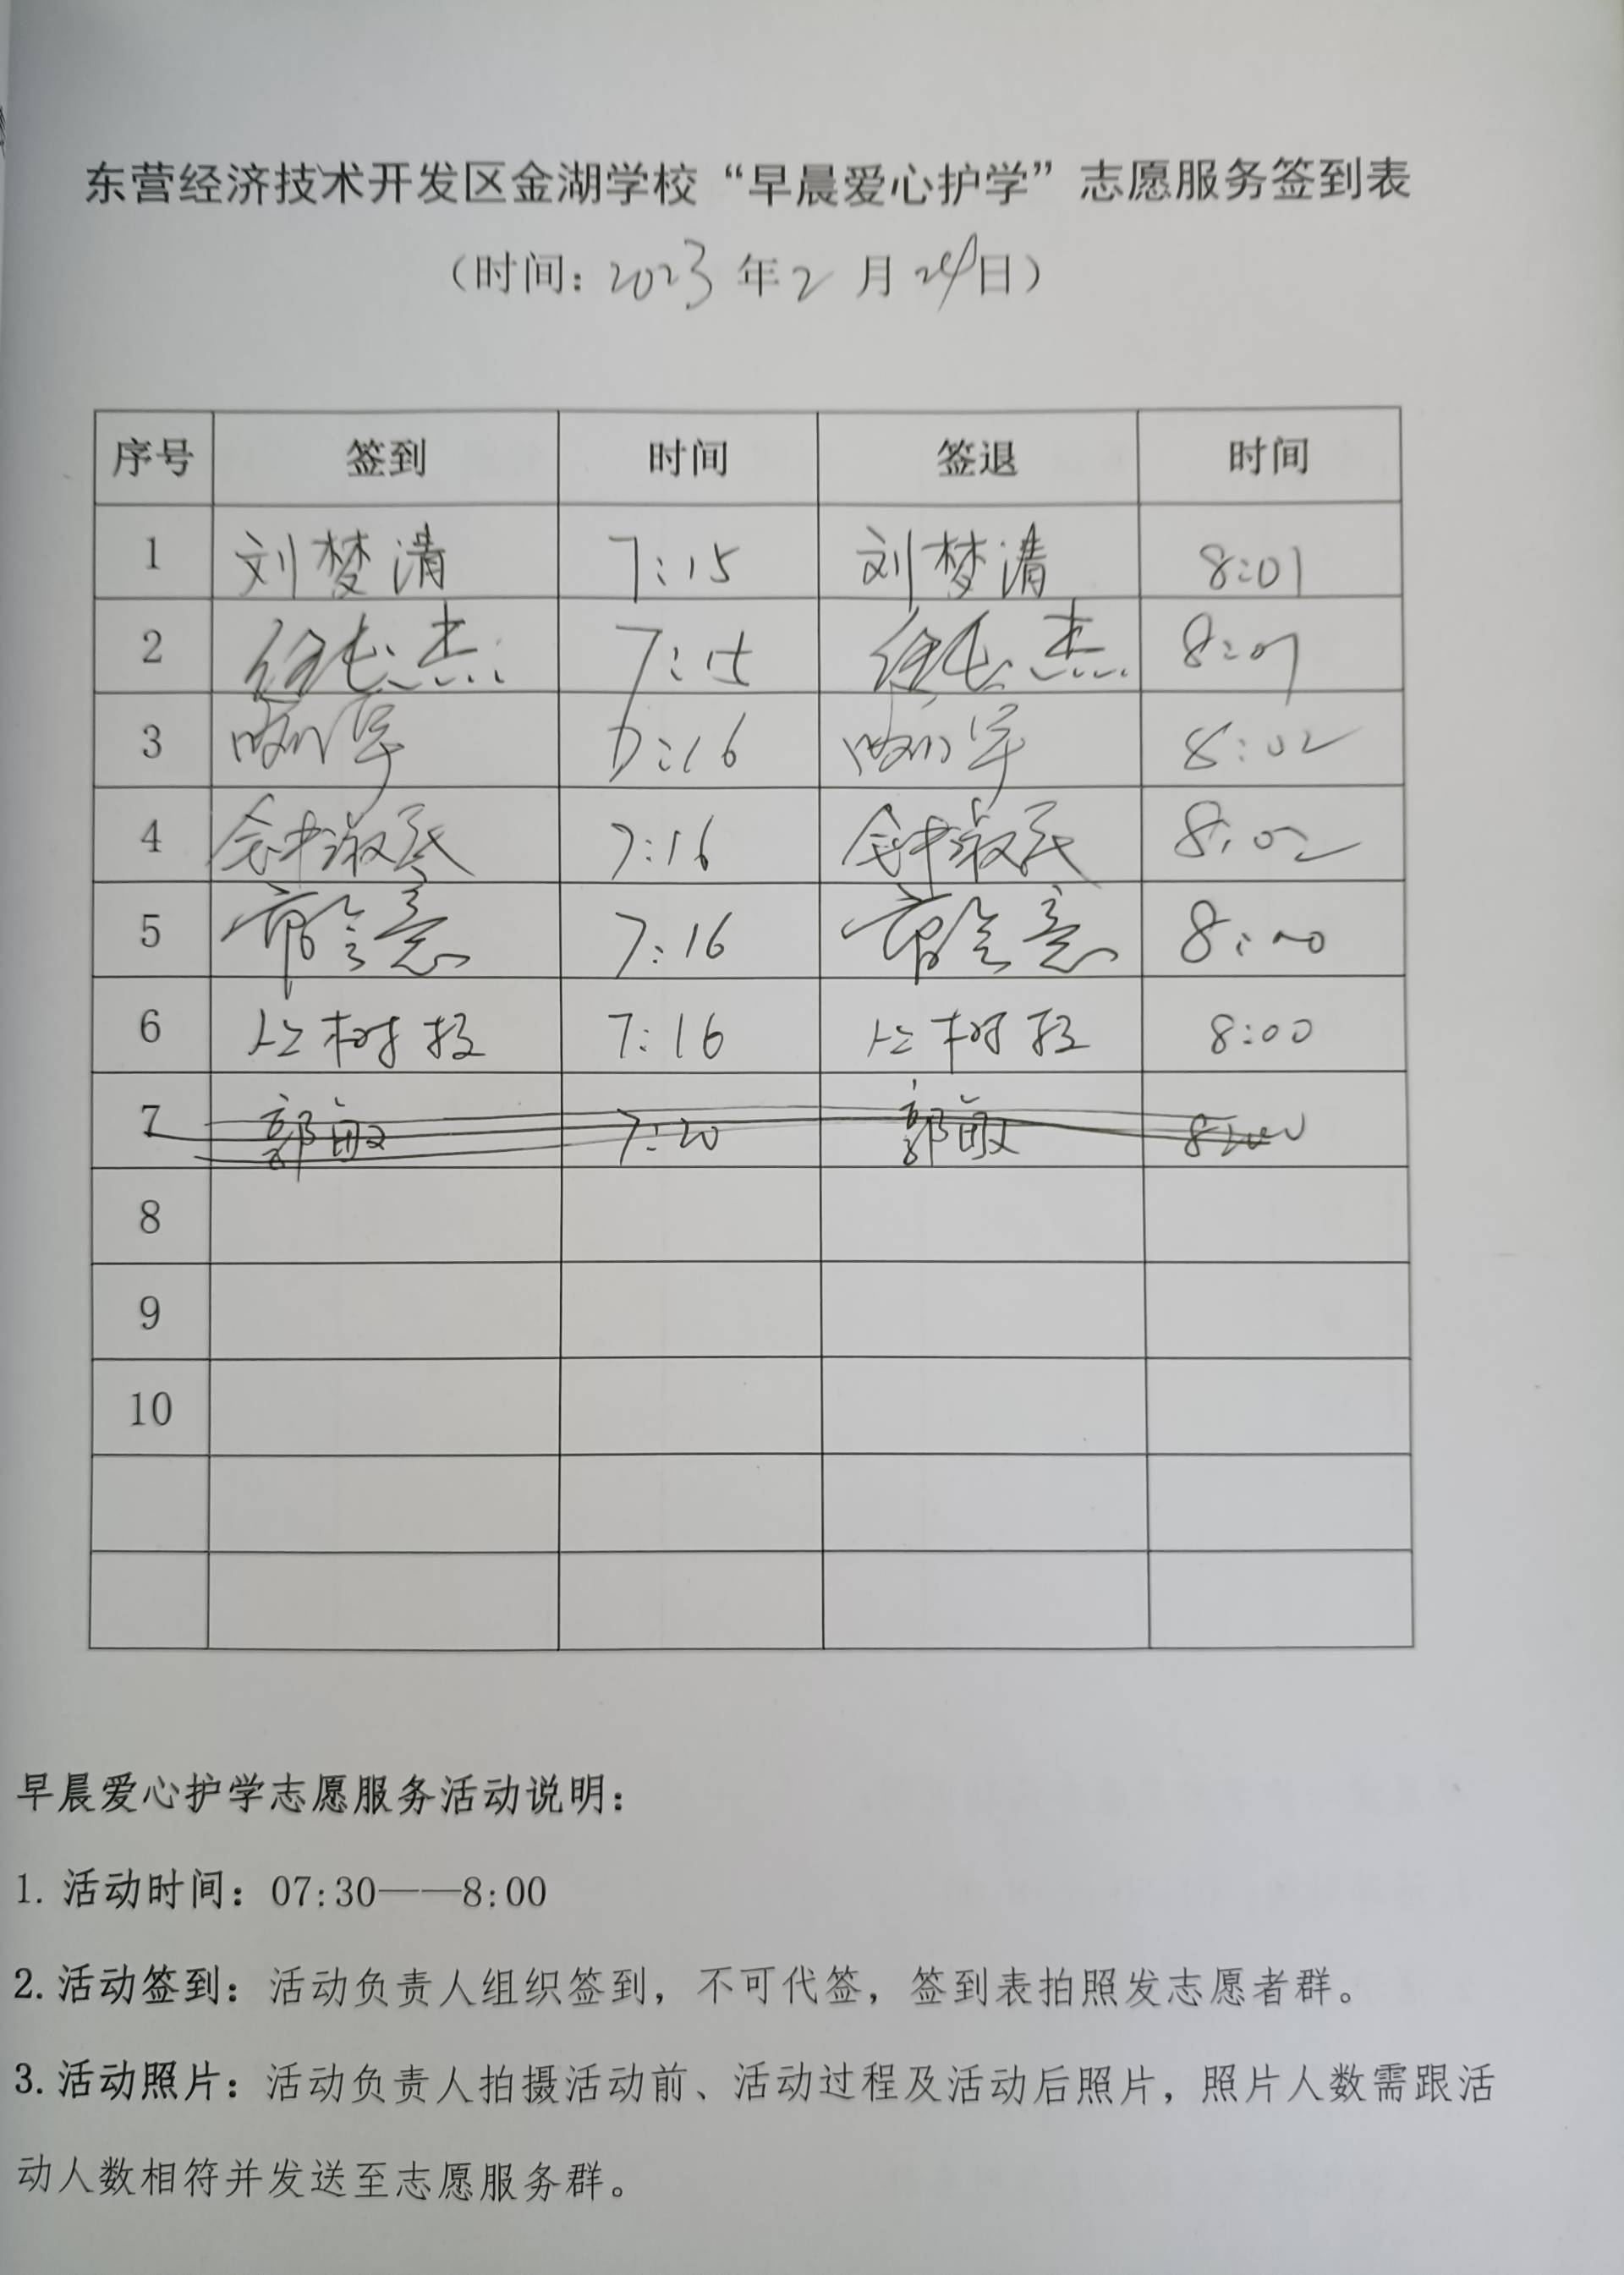 东营经济技术开发区金湖学校“早晨爱心护学”志愿服务签到表
（时间：2023年2月24日）
序号 签到 时间 签退 时间
1 刘梦清 7:15 刘梦清 8:01
2 7:15 8:01
3 7:16 8:02
4 钟淑民 7:16 钟淑民 8:02
5 7:16 8:00
6 7:16 8:00
7 郭敏 7:20 郭敏 8:00
8
9
10
早晨爱心护学志愿服务活动说明：
1. 活动时间：07:30——8:00
2. 活动签到：活动负责人组织签到，不可代签，签到表拍照发志愿者群。
3. 活动照片：活动负责人拍摄活动前、活动过程及活动后照片，照片人数需跟活
动人数相符并发送至志愿服务群。